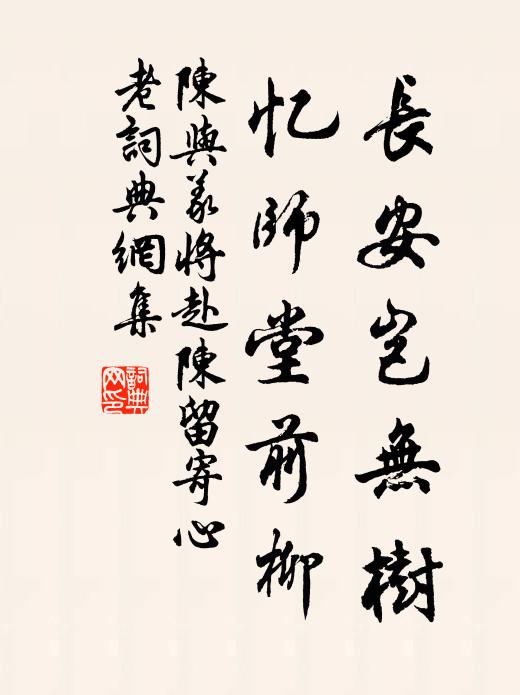 長安豈無樹
忆師堂前柳
陳與義將赴陳留寄心
老詞典網集
詞典网印